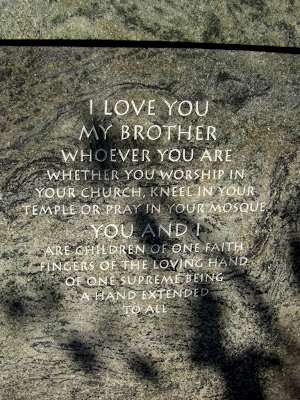 I LOVE YOU
MY BROTHER
WHOEVER YOU ARE
WHETHER YOU WORSHIP IN
YOUR CHURCH, KNEEL IN YOUR
TEMPLE OR PRAY IN YOUR MOSQUE
YOU AND I
ARE CHILDREN OF ONE FAITH
FINGERS OF THE LOVING HAND
OF ONE SUPREME BEING
A HAND EXTENDED
TO ALL